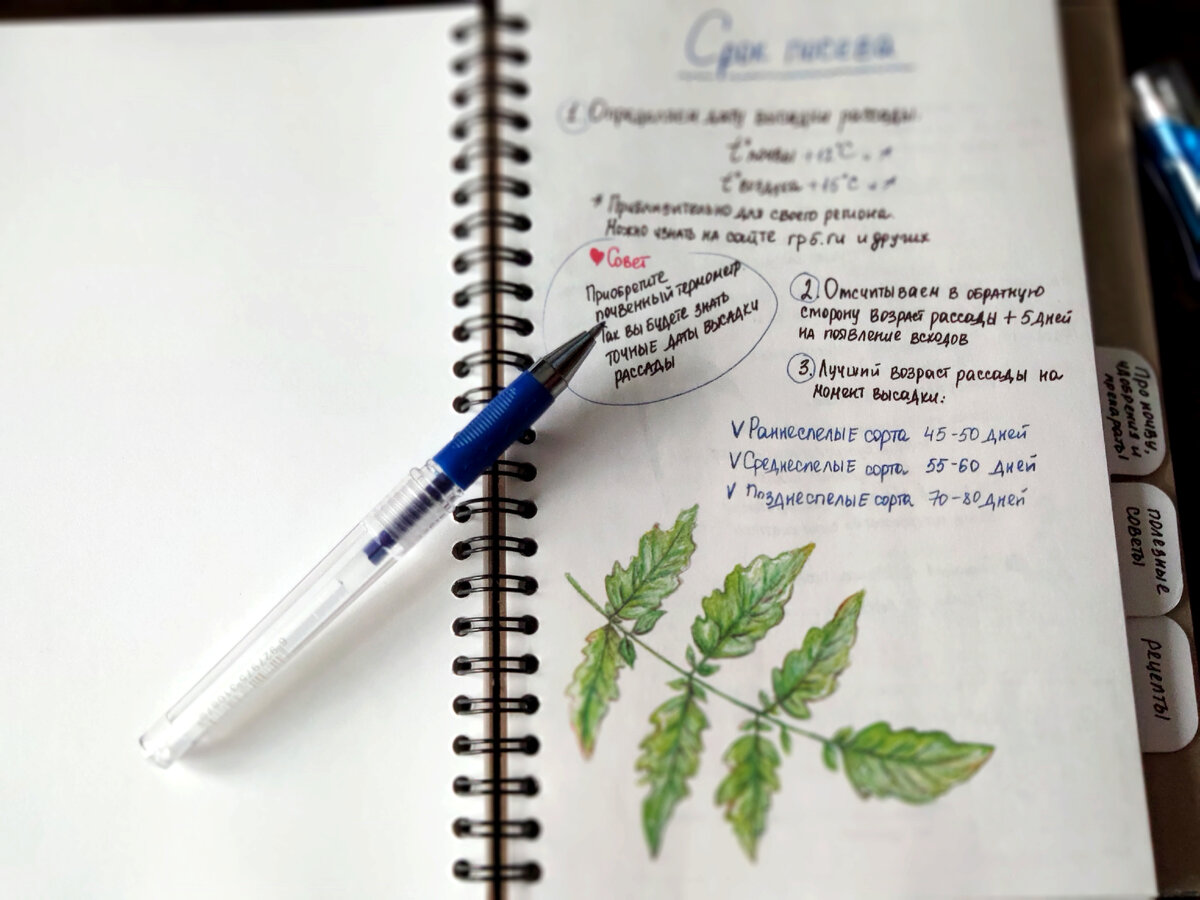 Срок посева
1. Определяем дату высадки рассады.
t° почвы +12°C
t° воздуха +15°C
* Приблизительно для своего региона.
Можно узнать на сайте rp5.ru и других
♥ Совет
Приобретите
почвенный термометр.
Так вы будете знать
точные даты высадки
рассады
2. Отсчитываем в обратную
сторону возраст рассады + 5 дней
на появление всходов
3. Лучший возраст рассады на
момент высадки:
V Раннеспелые сорта 45-50 дней
V Среднеспелые сорта 55-60 дней
V Позднеспелые сорта 70-80 дней
Про почву,
удобрения и
препараты
полезные
советы
рецепты